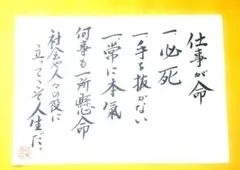 仕事が命
一必死
一手を抜かない
一常に本氣
何事も一所懸命
社会や人々の役に
立ってこそ人生だ。